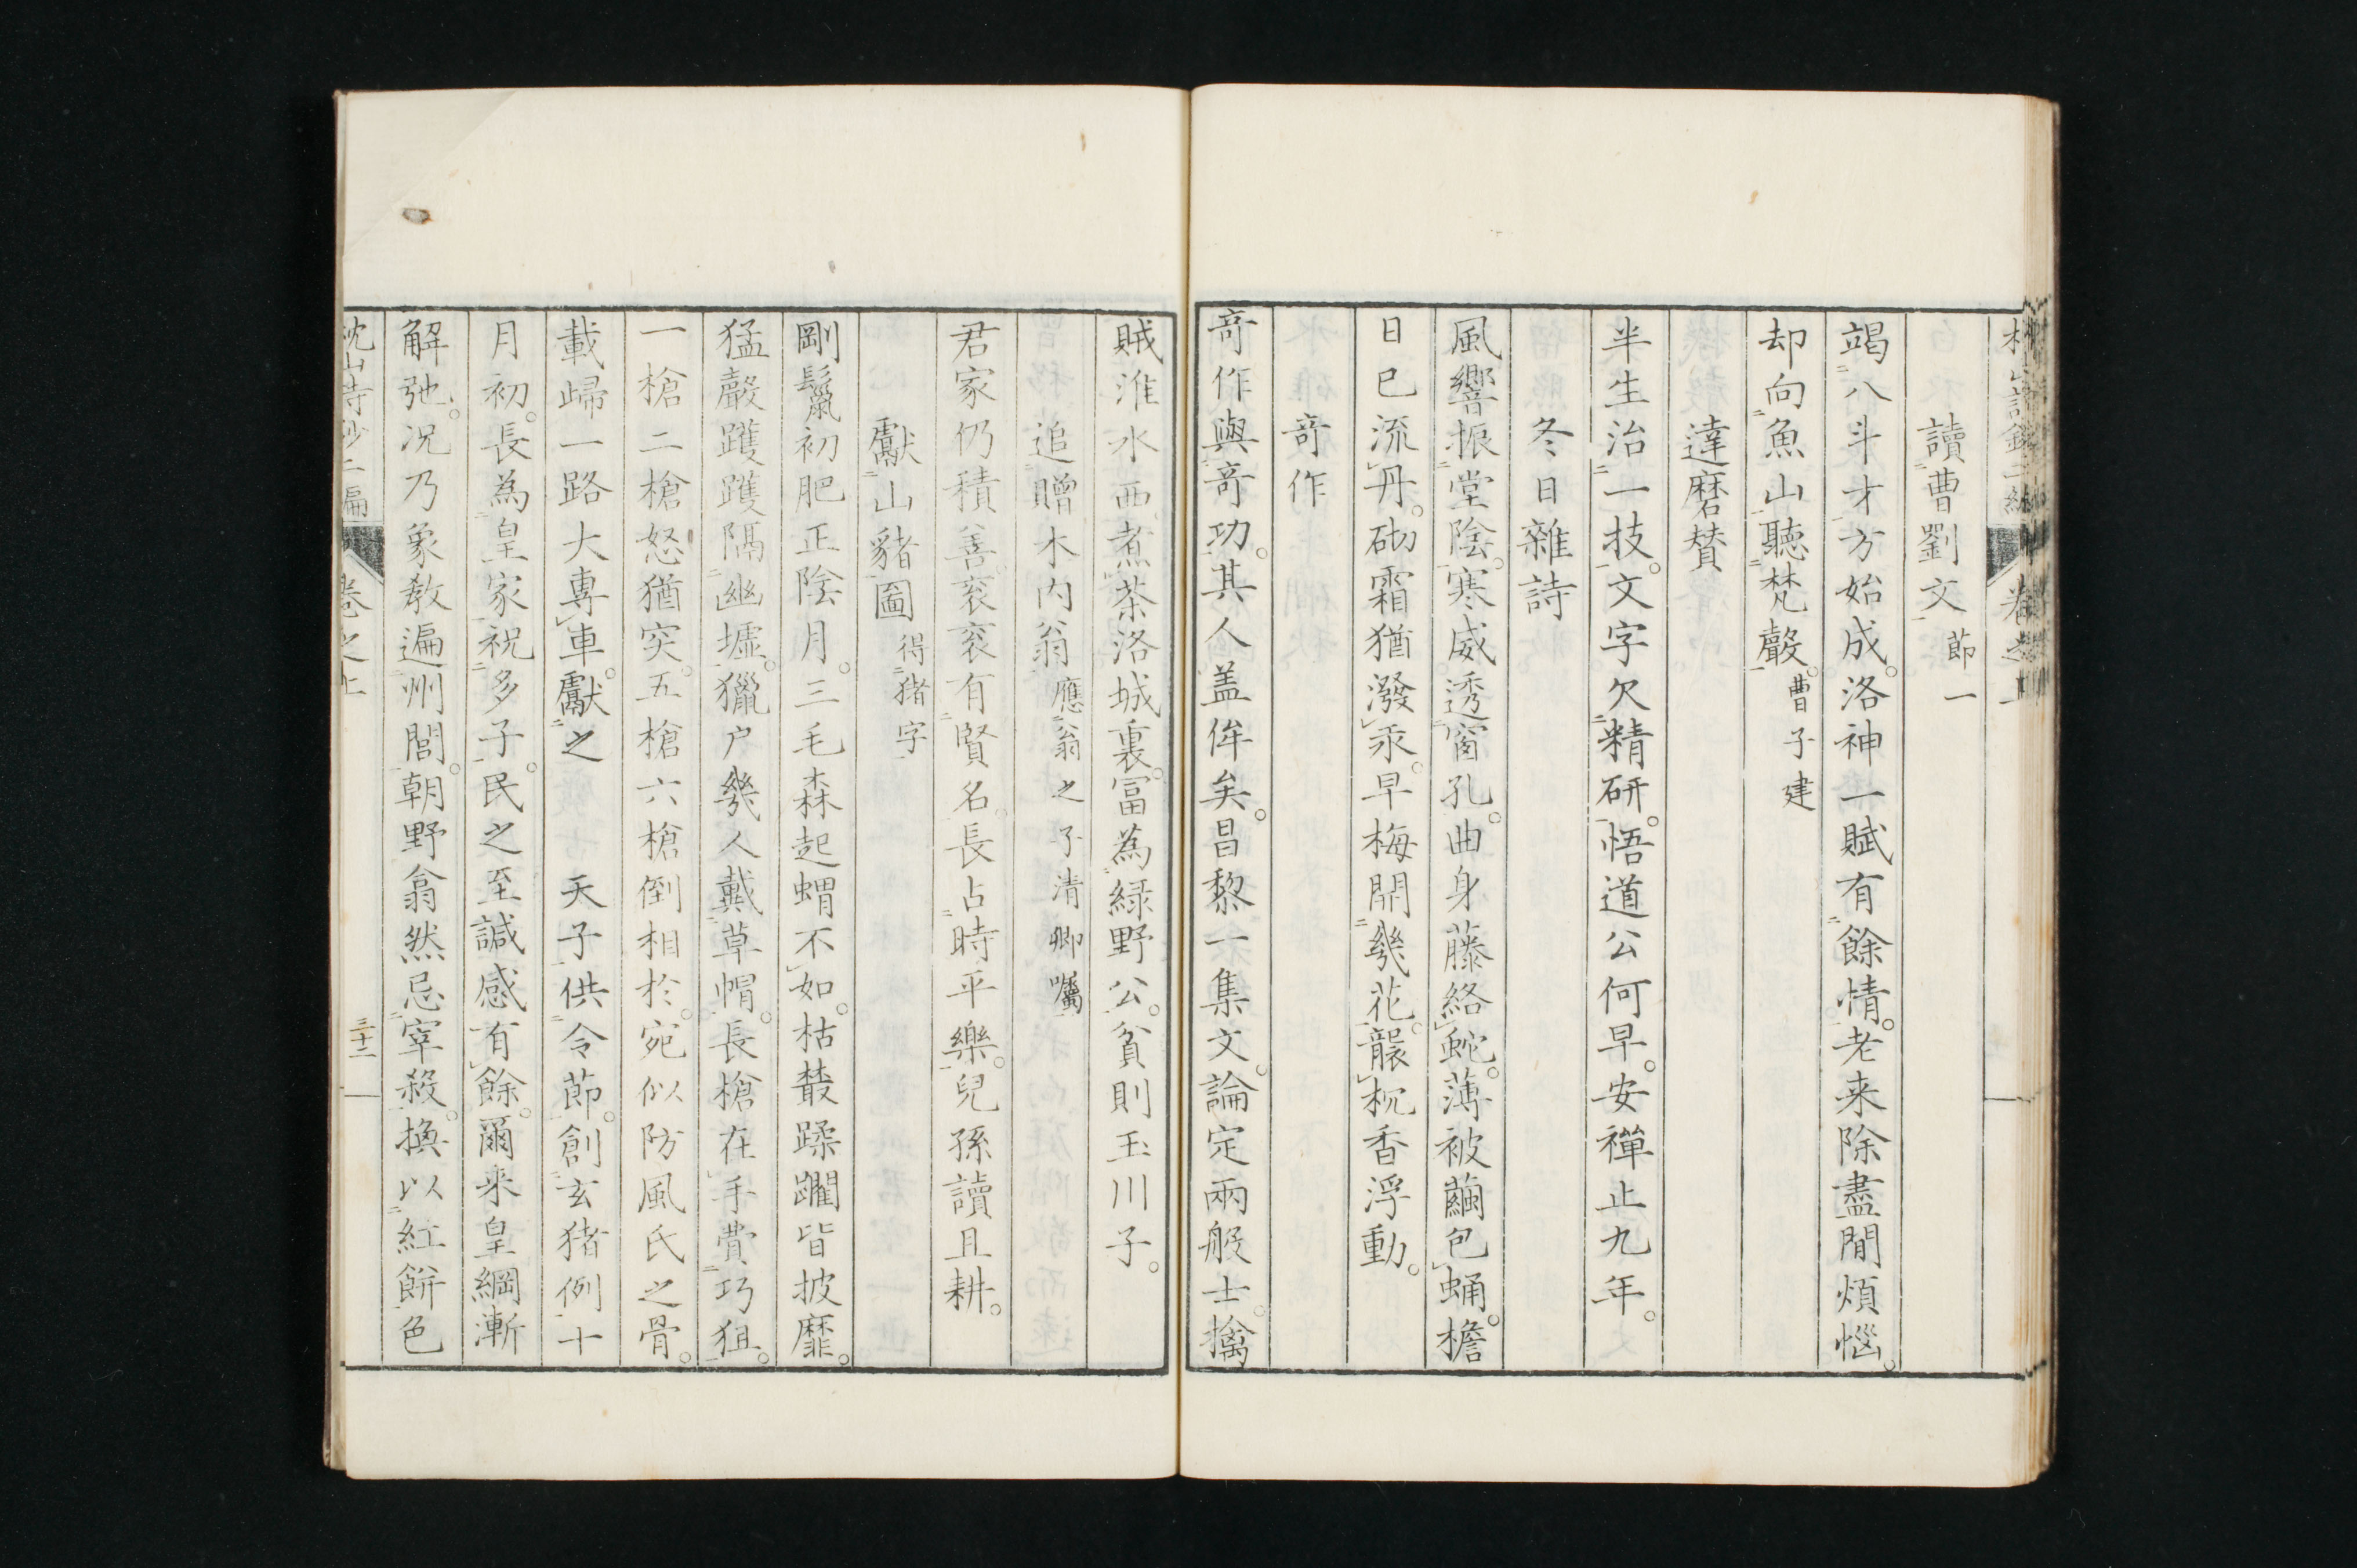 讀曹劉文節一
竭八斗才方始成。洛神一賦有餘情。老来除盡閒煩惱。
却向魚山聽梵聲。曹子建
達磨賛
半生治一技。文字欠精研。悟道公何早。安禪止九年。
冬日雜詩
風響振堂陰。寒威透窗孔。曲身藤絡蛇。薄被繭包蛹。檐
日已流丹。砌霜猶潑汞。早梅開幾花。襲枕香浮動。
奇作
奇作與奇功。其人盖侔矣。昌黎一集文。論定兩般士。擒
賊淮水西煮茶洛城裏。富為緑野公。貧則玉川子。
追贈木内翁應翁之子清卿囑
君家仍積善衮衮有賢名。長占時平樂。兒孫讀且耕。
獻山豬圖得猪字
剛鬣初肥正陰月。三毛森起蝟不如。枯䕺蹂躙皆披靡。
猛聲躩躩隔幽墟。獵户幾人戴草帽。長槍在手費巧狙。
一槍二槍怒猶突。五槍六槍倒相於。宛似防風氏之骨。
載歸一路大專車。獻之　天子供令節。創玄猪例十
月初。長為皇家祝多子。民之至諴感有餘。爾来皇綱漸
解弛。况乃象教遍州閭。朝野翕然忌宰殺。換以紅餅色
枕山詩鈔二編　卷之上　三十二